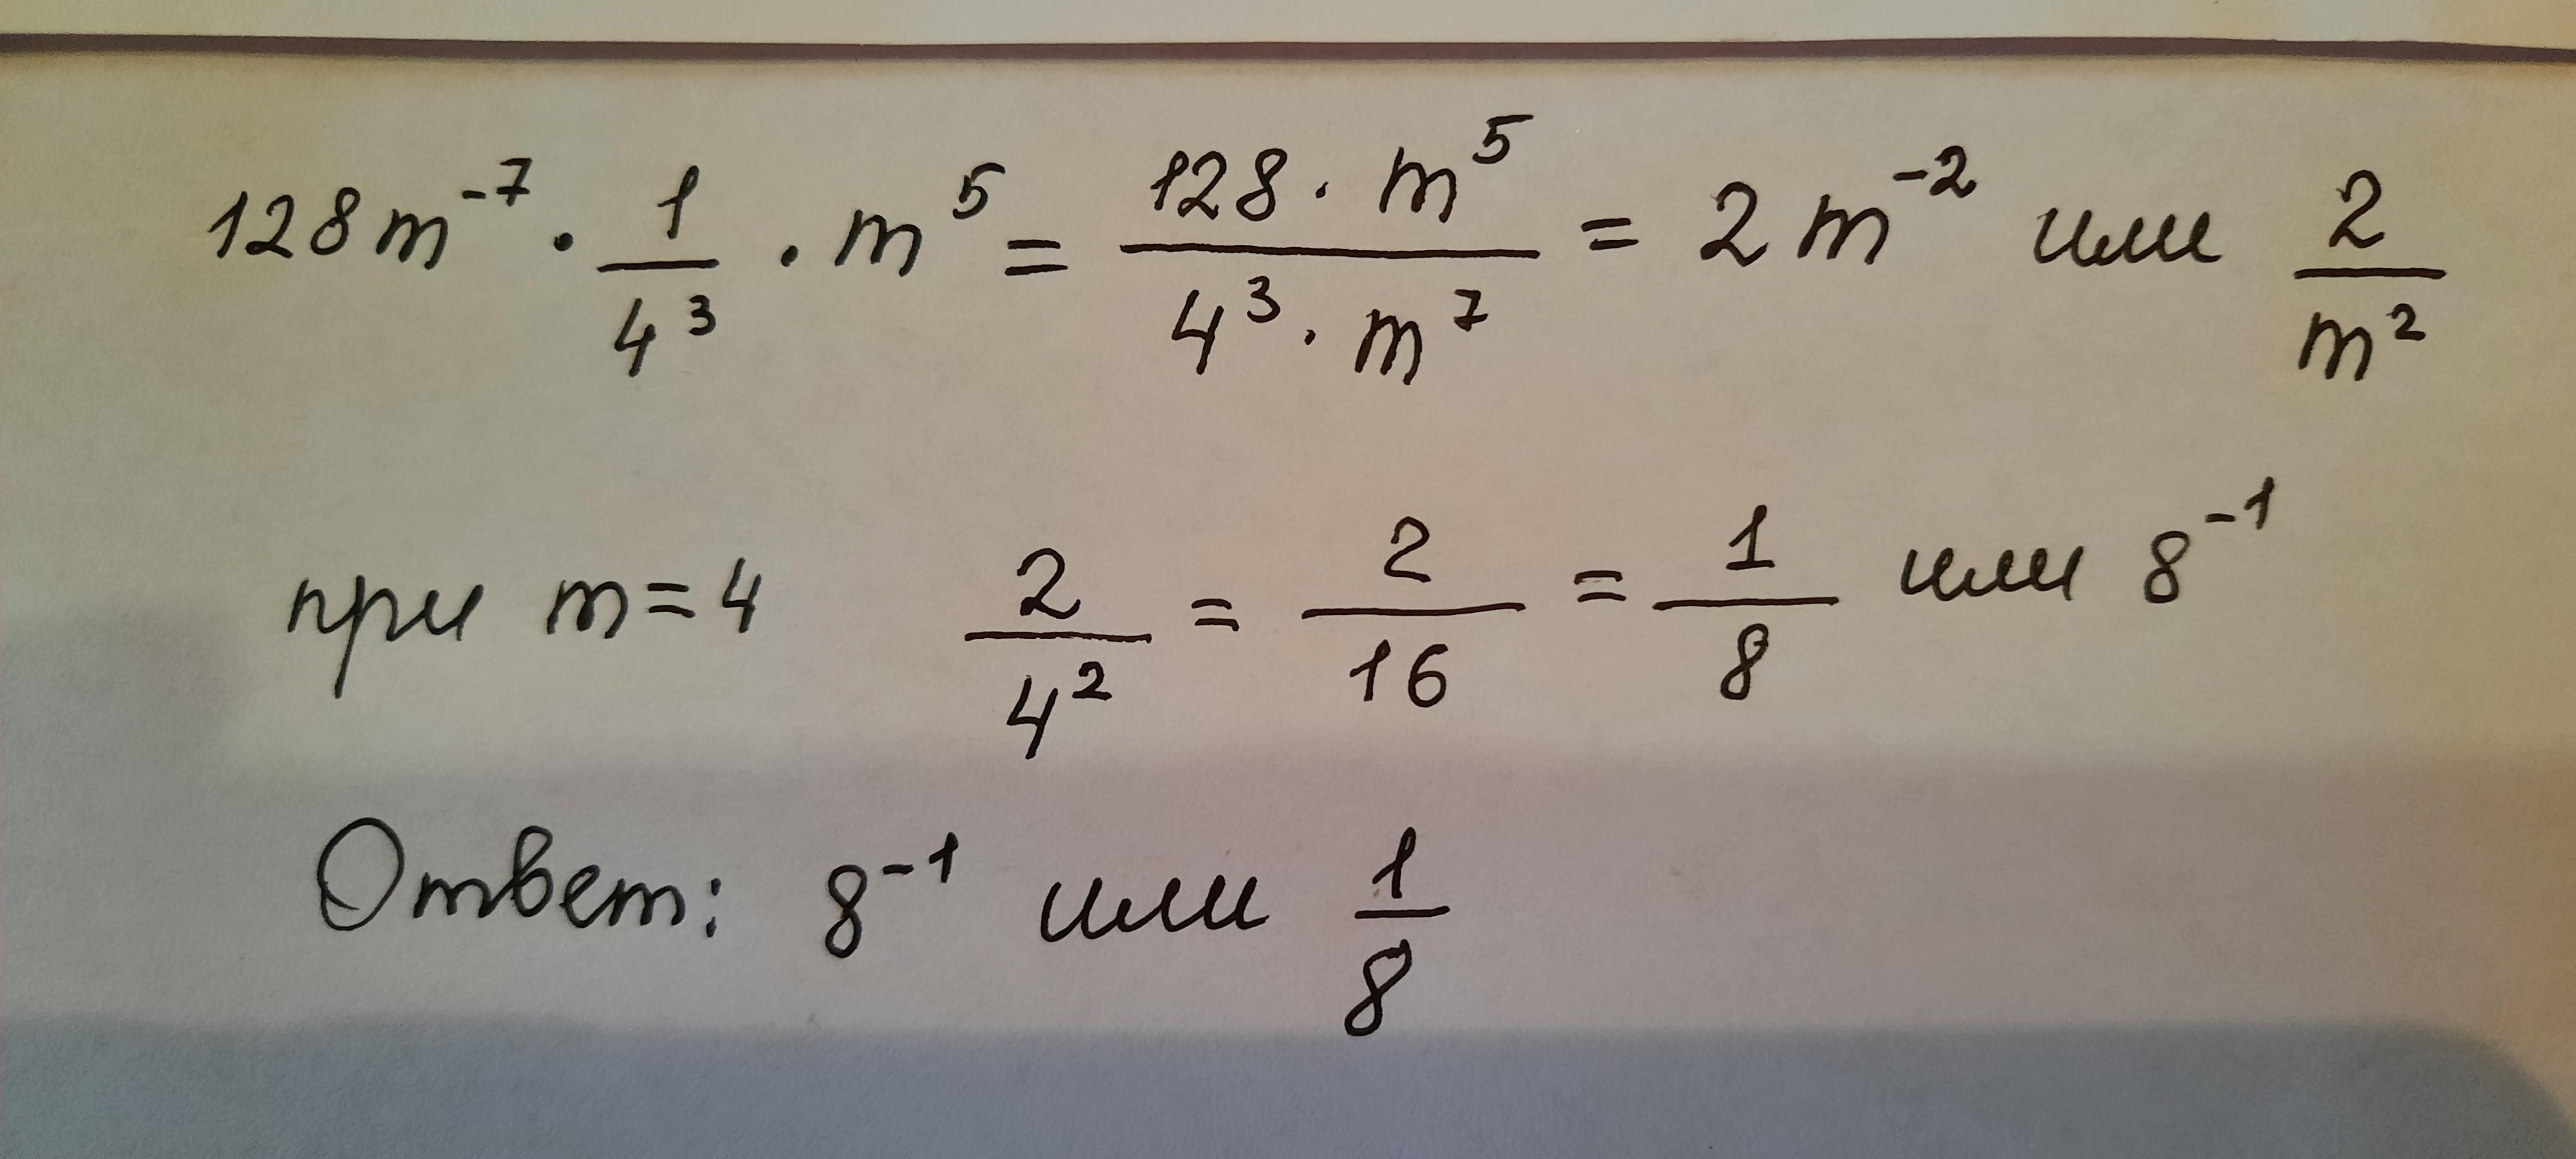 128m⁻⁷ · 1/4³ · m⁵ = 128 · m⁵ / 4³ · m⁷ = 2m⁻² или 2/m²
при m = 4 2/4² = 2/16 = 1/8 или 8⁻¹
Ответ: 8⁻¹ или 1/8